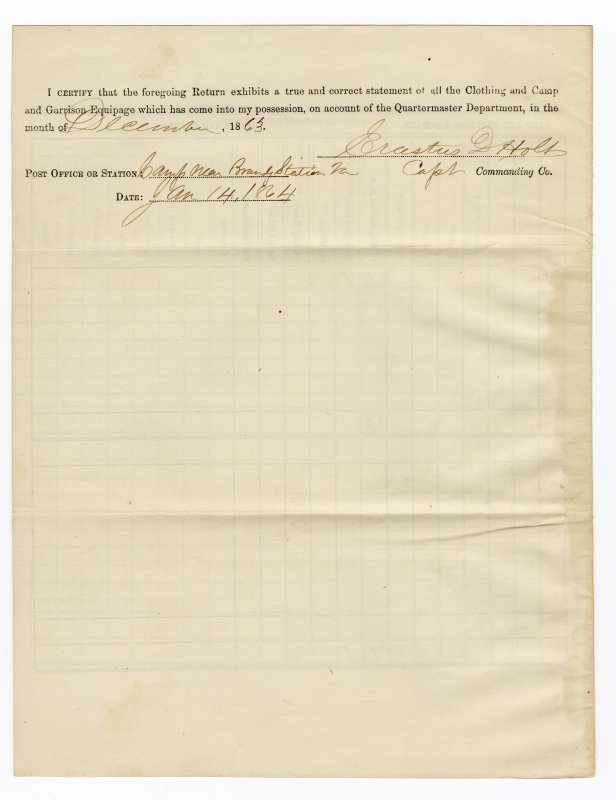 I CERTIFY that the foregoing Return exhibits a true and correct statement of all the Clothing and Camp
and Garrison Equipage which has come into my possession, on account of the Quartermaster Department, in the
month of December, 1863.
Erastus D Holt
POST OFFICE OR STATION: Camp Near Brandy Station Va Capt Commanding Co.
DATE: Jan 14, 1864